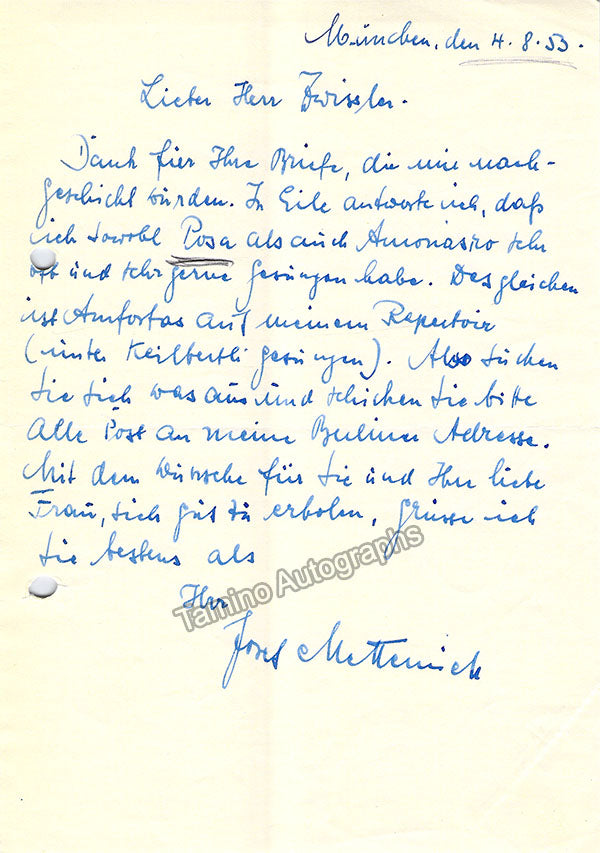 München, den 4.8.53.
Lieber Herr Zwissler.
Dank für Ihre Briefe, die mir nach-
geschickt wurden. In Eile antworte ich, daß
ich sowohl Posa als auch Amonasro sehr
oft und sehr gerne gesungen habe. Desgleichen
ist Amfortas auf meinem Repertoir
(unter Keilberth gesungen). Also suchen
Sie sich was aus und schicken Sie bitte
alle Post an meine Berliner Adresse.
Mit dem Wunsche für Sie und Ihre liebe
Frau, sich gut zu erholen, grüsse ich
Sie bestens als
Ihr
Josef Metternich
Tamino Autographs